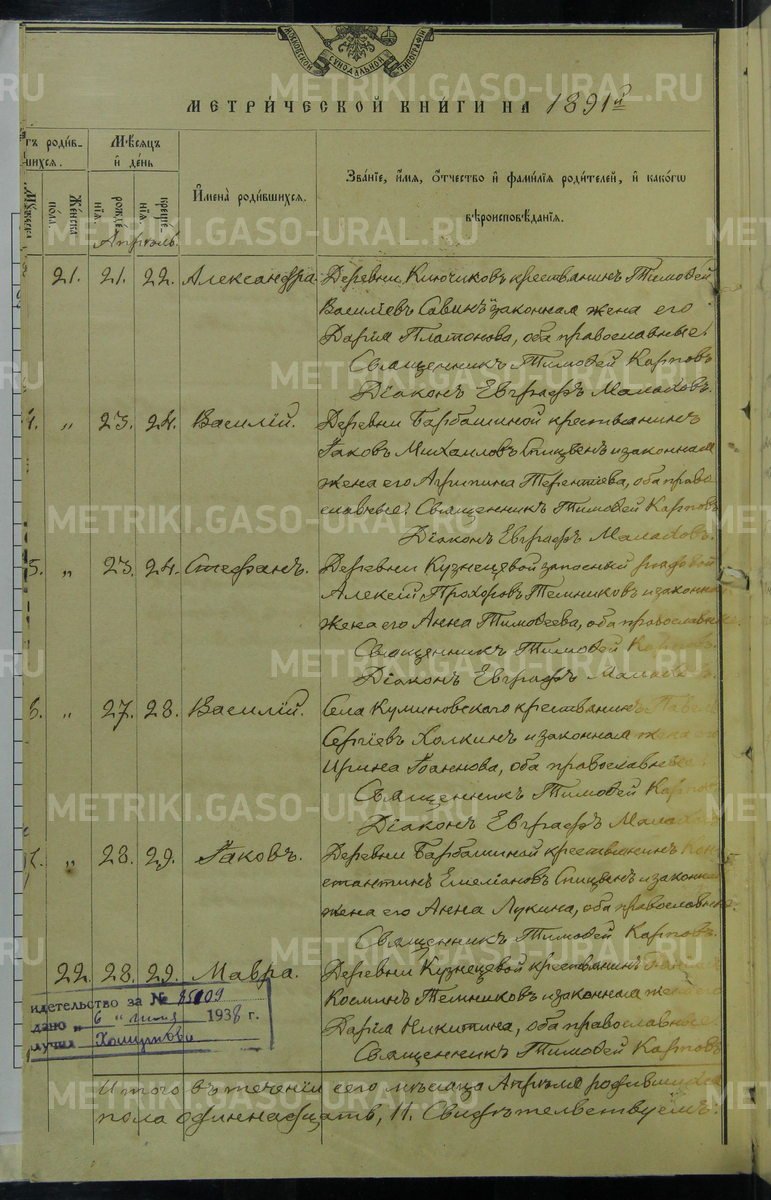 МОСКОВСКОЙ СУНОДАЛЬНОЙ ТИПОГРАФІИ
МЕТРИ́ЧЕСКОЙ КНИ́ГИ НА 1891й
родив-
шихся.
Мѣ́сяцъ
и҆ де́нь
И҆мена̀ роди́вшихся.
Зва́нїе, и҆́мѧ, ѻ҆́тчество и҆ фами́лїѧ роди́телей, и҆ како́гѡ
вѣроисповѣ́данїѧ.
Же́нска
по́ла.
рожде́
нїѧ
креще́
нїѧ
Апрѣль.
21. 21. 22. Александра. Деревни Ключиковъ крестьянинъ Тимоѳей
Василіевъ Савинъ и законная жена его
Дарія Платонова, оба православные.
Священникъ Тимоѳей Карповъ
Діаконъ Евграфъ Малаховъ.
4. „ 23. 24. Василій. Деревни Барбашиной крестьянинъ
Іаковъ Михаиловъ Спицынъ и законная
жена его Агрипина Терентіева, оба право
славные. Священникъ Тимоѳей Карповъ
Діаконъ Евграфъ Малаховъ.
5. „ 23. 24. Стефанъ. Деревни Кузнецевой запасный рядовой
Алексій Прохоровъ Темниковъ и законная
жена его Анна Тимоѳеева, оба православные.
Священникъ Тимоѳей Карповъ.
Діаконъ Евграфъ Малаховъ.
6. „ 27. 28. Василій. Села Куминовскаго крестьянинъ Павелъ
Сергіевъ Холкинъ и законная жена его
Ирина Іоаннова, оба православные.
Священникъ Тимоѳей Карповъ
Діаконъ Евграфъ Малаховъ
7. „ 28. 29. Іаковъ. Деревни Барбашиной крестьянинъ Кон
стантинъ Емеліановъ Спицынъ и законная
жена его Анна Лукина, оба православные.
Священникъ Тимоѳей Карповъ.
22. 28. 29. Мавра. Деревни Кузнецевой крестьянинъ
Косминъ Темниковъ и законная жена его
Дарія Никитина, оба православные.
Священникъ Тимоѳей Карповъ
идетельство за №
дано „ 6 „ 1938 г.
лучил
Итого въ теченіи сего мѣсяца Апрѣля родившихся
пола одиннадцать, 11. Свидѣтельствуемъ:
METRIKI.GASO-URAL.RU